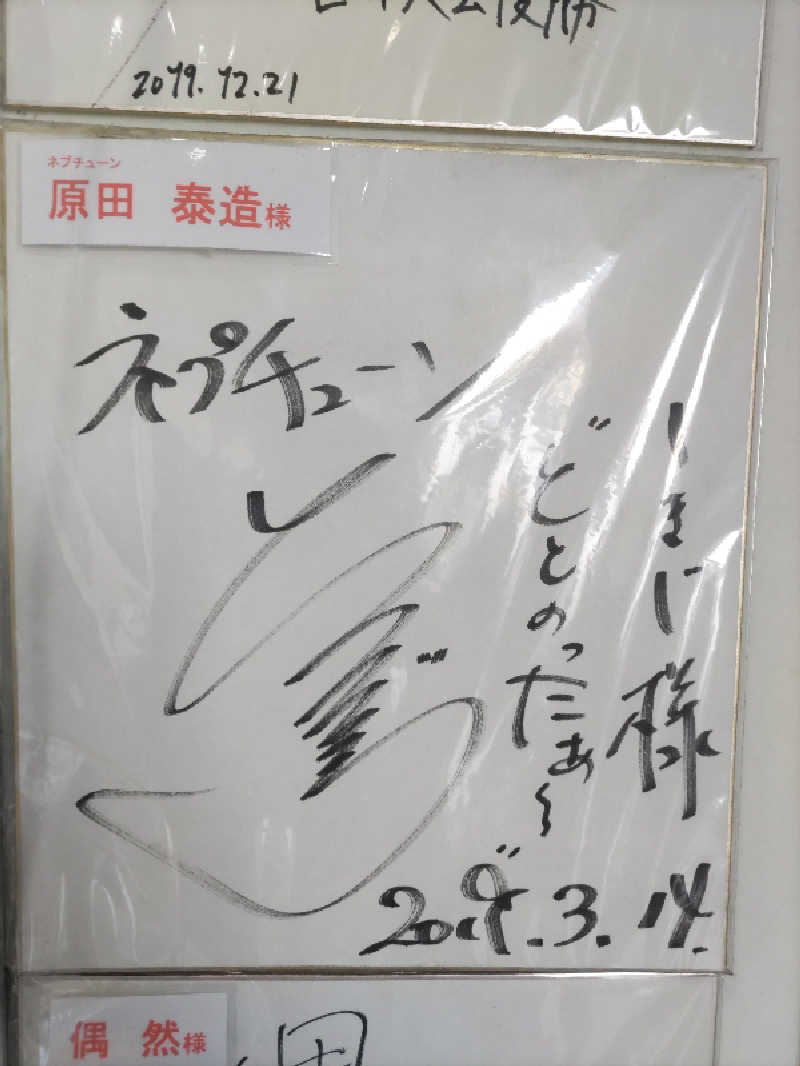 2019.12.21
ネプチューン
原田 泰造様
ネプチューン
しまに様
どとのったあ〜
2019.3.14.
偶然様